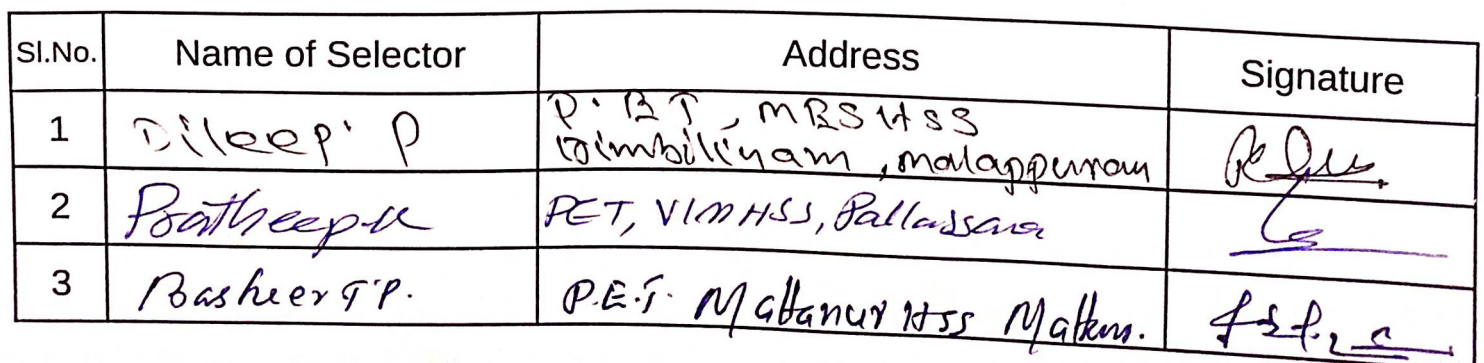 Sl.No. Name of Selector Address Signature
1 Dileep. P P.E.T, MESHSS
Irimbiliyam, malappuram
2 Pratheep K PET, VIMHSS, Pallassana
3 Basheer T.P. P.E.T. Mattanur HSS